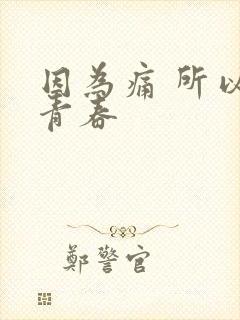 因為痛 所以
青春
鄭警官